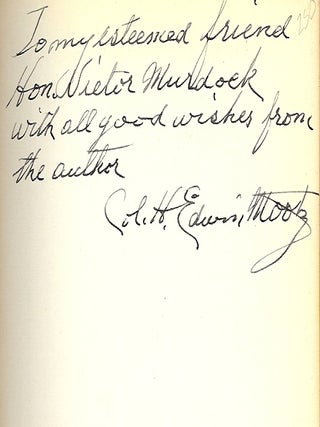 To my esteemed friend
Hon. Victor Murdock
with all good wishes from
the author
Col. H. Edwin Mootz